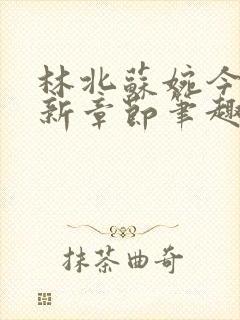 林北蘇婉今
新章節筆趣
抹茶曲奇